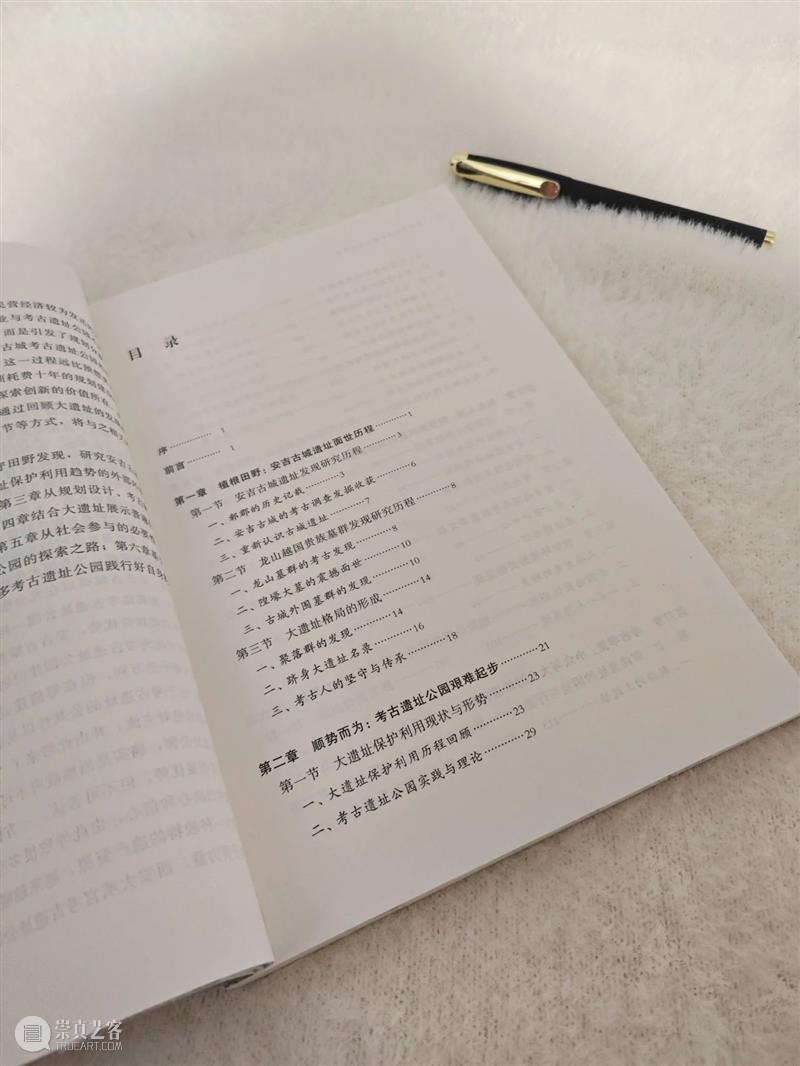 民营经济较为发达的
业与考古遗址公园
而是引发了规划
古城考古遗址公园
这一过程远比
耗费十年的规划
探索创新的价值所在
通过回顾大遗址的发展
节等方式，将与之相
守田野发现，研究安吉
址保护利用趋势的外部
第三章从规划设计、考古
四章结合大遗址展示
第五章从社会参与的必要
公园的探索之路；第六章
多考古遗址公园践行好自身
目 录
序…………1
前言…………1
第一章 植根田野：安吉古城遗址面世历程…………1
第一节 安吉古城遗址发现研究历程…………3
一、鄣郡的历史记载…………3
二、安吉古城的考古调查发掘收获…………6
三、重新认识古城遗址…………7
第二节 龙山越国贵族墓群发现研究历程…………8
一、龙山墓群的考古发现…………8
二、隍壕大墓的震撼面世…………10
三、古城外围墓群的发现…………10
第三节 大遗址格局的形成…………14
一、聚落群的发现…………14
二、跻身大遗址名录…………16
三、考古人的坚守与传承…………18
第二章 顺势而为：考古遗址公园艰难起步…………21
第一节 大遗址保护利用现状与形势…………23
一、大遗址保护利用历程回顾…………23
二、考古遗址公园实践与理论…………29
崇真艺客
TRUEART.COM